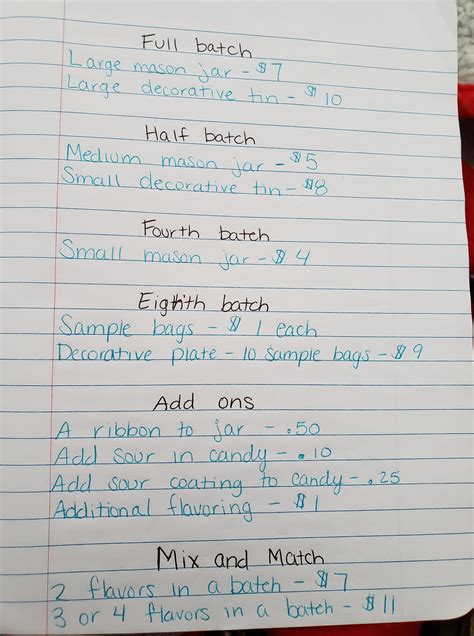 Full batch
Large mason jar - $7
Large decorative tin - $10
Half batch
Medium mason jar - $5
Small decorative tin - $8
Fourth batch
Small mason jar - $4
Eighth batch
Sample bags - $1 each
Decorative plate - 10 sample bags - $9
Add ons
A ribbon to jar - .50
Add sour in candy - .10
Add sour coating to candy - .25
Additional flavoring - $1
Mix and Match
2 flavors in a batch - $7
3 or 4 flavors in a batch - $11